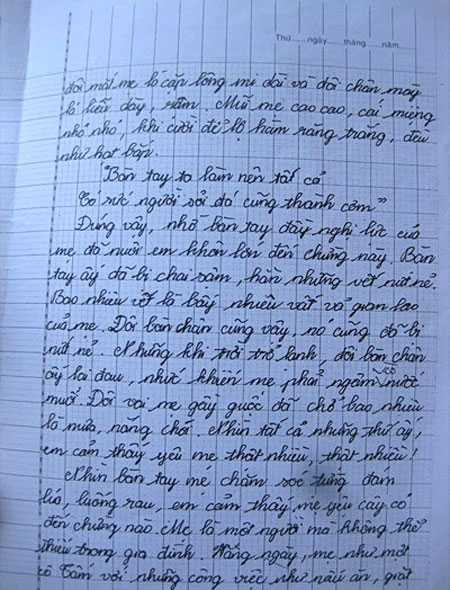 Thứ......ngày......tháng......năm......
đôi mắt mẹ là cặp lông mi dài và đôi chân mày
lá liễu dày, rậm. Mũi mẹ cao cao, cái miệng
nhỏ nhỏ, khi cười để lộ hàm răng trắng, đều
như hạt bắp.
"Bàn tay ta làm nên tất cả
Có sức người sỏi đá cũng thành cơm"
Đúng vậy, nhờ bàn tay đầy nghị lực của
mẹ đã nuôi em khôn lớn đến chừng này. Bàn
tay ấy đã bị chai sạm, hằn những vết nứt nẻ.
Bao nhiêu vết là bấy nhiêu vất vả gian lao
của mẹ. Đôi bàn chân cũng vậy, nó cũng đã bị
nứt nẻ. Những khi trời trở lạnh, đôi bàn chân
ấy lại đau, nhức khiến mẹ phải ngâm cả nước
muối. Đôi vai mẹ gầy guộc đã chở bao nhiêu
là mưa, nắng chói. Nhìn tất cả những thứ ấy,
em cảm thấy yêu mẹ thật nhiều, thật nhiều!
Nhìn bàn tay mẹ chăm sóc từng đám
lúa, luống rau, em cảm thấy mẹ yêu cây cỏ
đến chừng nào. Mẹ là một người mà không thể
thiếu trong gia đình. Hằng ngày, mẹ như một
cô Tấm với những công việc như nấu ăn, giặt